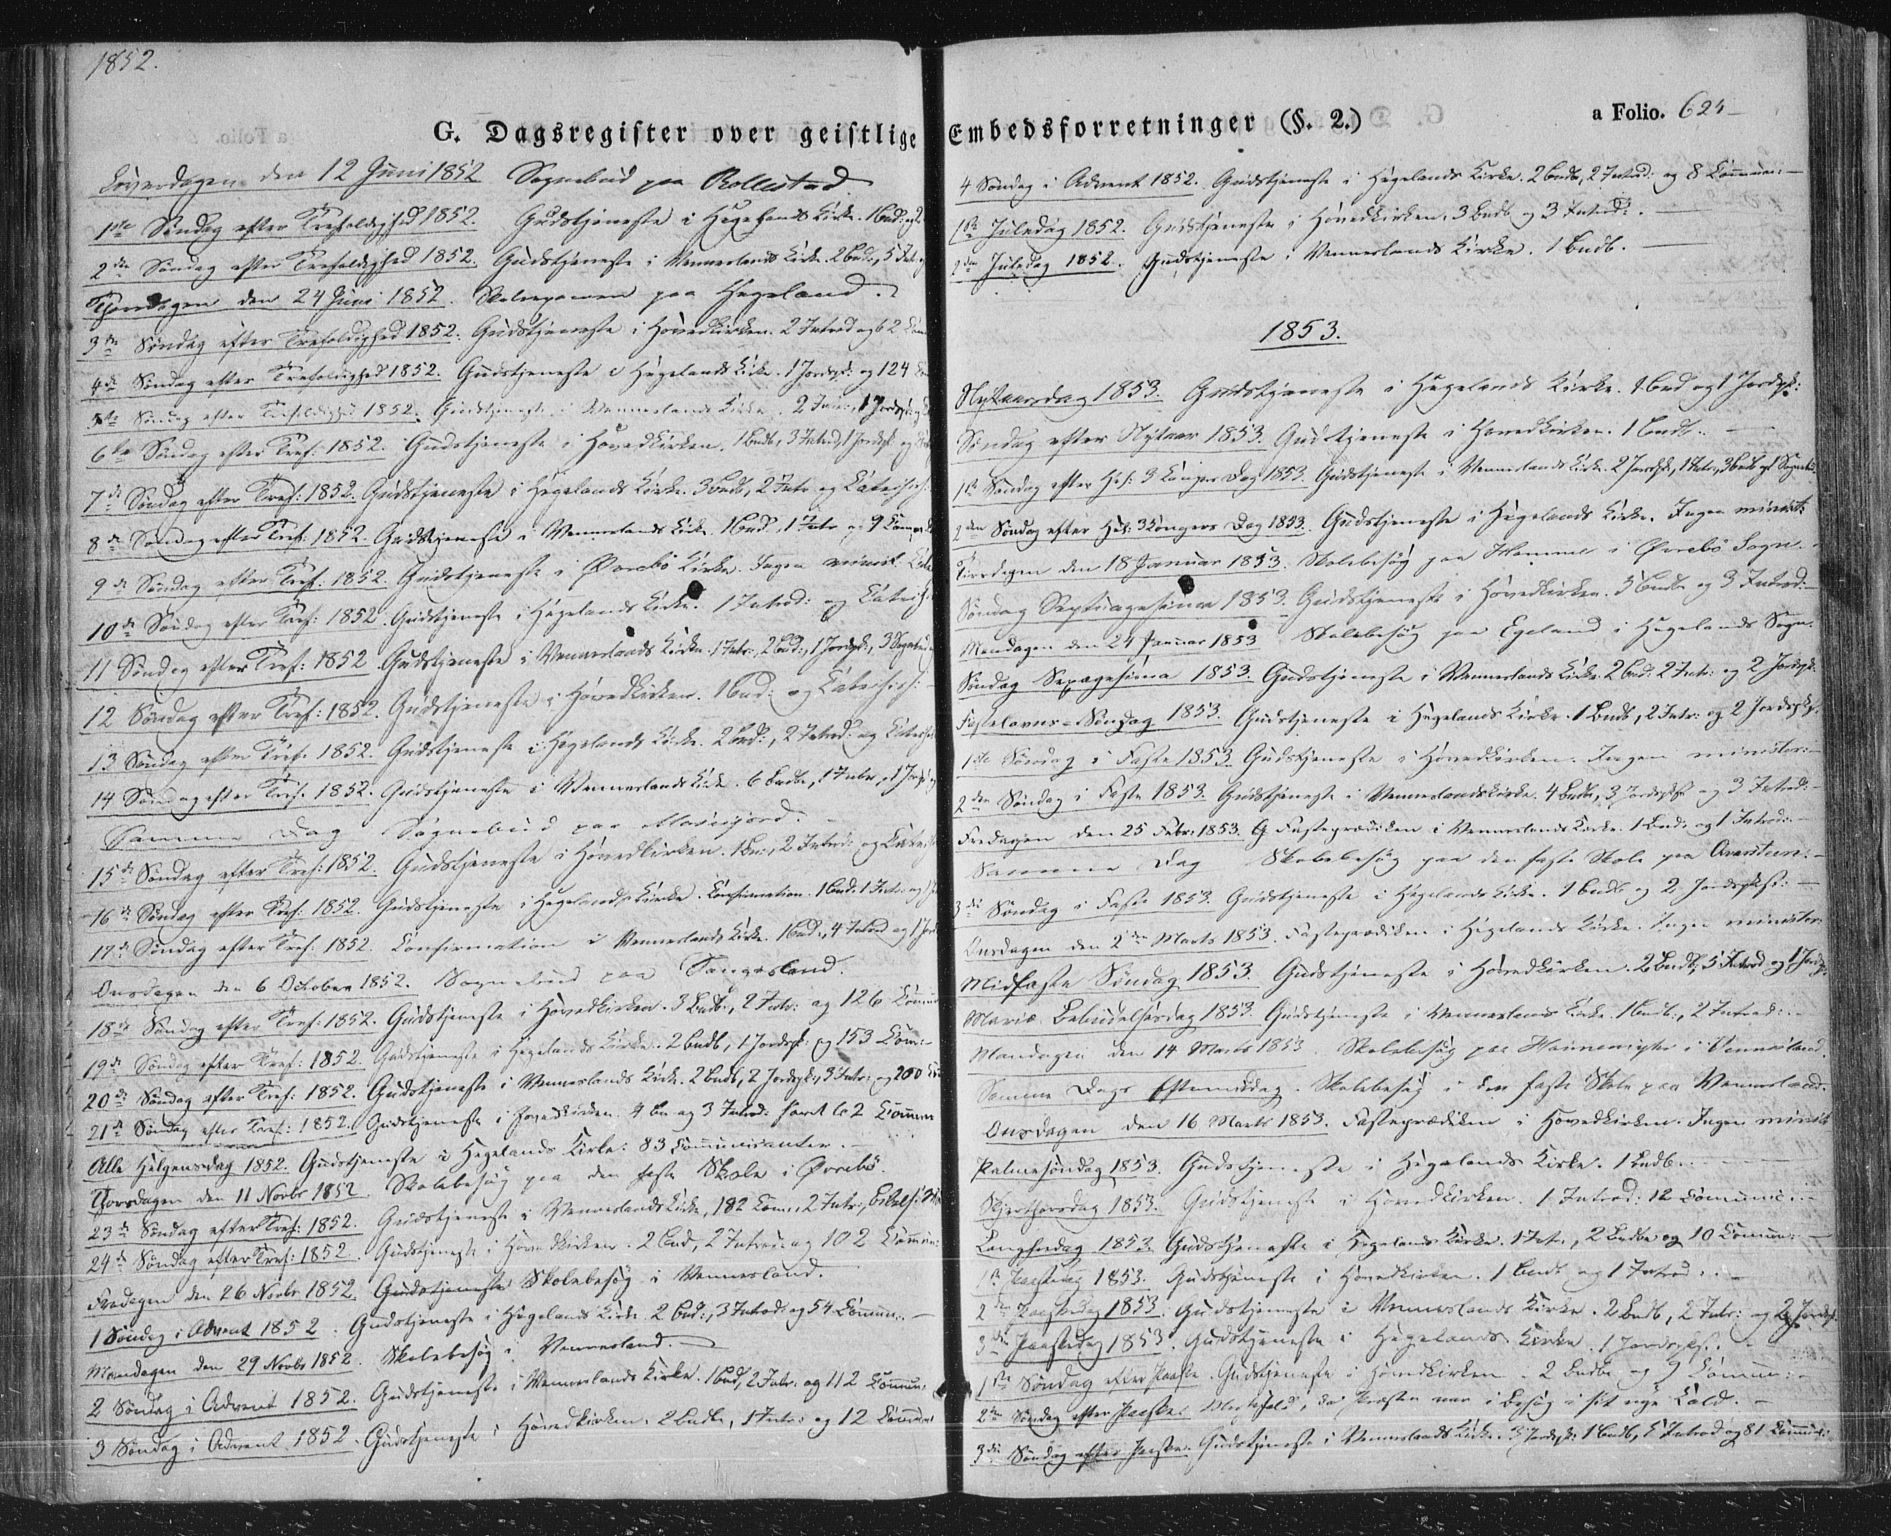 1852.
G. Dagsregister over geistlige
Løverdagen den 12 Juni 1852 Sognebud paa Rollestad
1ste Søndag efter Trefoldighed 1852. Gudstjeneste i Hegelands Kirke. 1 Bud:
2den Søndag efter Trefoldighed 1852. Gudstjeneste i Vennerlands Kirke. 2 Bud:, 5 Int
Torsdagen den 24 Juni 1852. Skoleexamen paa Hegeland.
3die Søndag efter Trefoldighed 1852. Gudstjeneste i Hovedkirken. 2 Introd og 62
4de Søndag efter Trefoldighed 1852. Gudstjeneste i Hegelands Kirke. 1 Jordspk: og 124
5te Søndag efter Trefoldighed 1852. Gudstjeneste i Vennerlands Kirke. 2 Intr:, 1 Jordspk:
6te Søndag efter Tref: 1852. Gudstjeneste i Hovedkirken. 1 Budb, 3 Introd, 1 Jordspk og
7de Søndag efter Tref: 1852. Gudstjeneste i Hegelands Kirke. 3 Budb, 2 Intr og Catechis:
8de Søndag efter Tref: 1852. Gudstjeneste i Vennerlands Kirke. 1 Bud, 1 Intr og 9 Comm
9de Søndag efter Tref. 1852. Gudstjeneste i Øvrebö Kirke. Ingen minist.
10de Søndag efter Tref: 1852. Gudstjeneste i Hegelands Kirke. 1 Introd: og Catech
11 Søndag efter Tref: 1852 Gudstjeneste i Vennerlands Kirke. 1 Intr, 2 Bud:, 1 Jordspk, 3 Sognebud
12 Søndag efter Tref: 1852. Gudstjeneste i Hovedkirken. 1 Bud: og Catechis:
13 Søndag efter Tref. 1852. Gudstjeneste i Hegelands Kirke. 2 Bud:, 2 Introd: og Catechis
14 Søndag efter Tref. 1852. Gudstjeneste i Vennerlands Kirke. 6 Budb, 1 Intr, 1 Jordspk
Samme Dag Sognebud paa
15de Søndag efter Tref: 1852. Gudstjeneste i Hovedkirken. 1 Bu:, 2 Introd: og Catech
16de Søndag efter Tref: 1852. Gudstjeneste i Hegelands Kirke. Confirmation. 1 Bud: 1 Intr: og
17de Søndag efter Tref: 1852. Confirmation i Vennerlands Kirke. 1 Bud:, 4 Introd og 1 Jord
Onsdagen den 6 October 1852. Sognebud paa Sangesland.
18de Søndag efter Tref: 1852. Gudstjeneste i Hovedkirken. 3 Budb., 2 Intr: og 126 Commun
19de Søndag efter Tref: 1852. Gudstjeneste i Hegelands Kirke. 2 Budb, 1 Jordspk: og 153 Com:
20de Søndag efter Tref: 1852. Gudstjeneste i Vennerlands Kirke. 2 Budb, 2 Jordspk:, 3 Intr: og 200
21de Søndag efter Tref: 1852. Gudstjeneste i Hovedkirken 4 Bu og 3 Introd: samt 62 Commun
Alle Helgensdag 1852. Gudstjeneste i Hegelands Kirke: 83 Communicanter.
Torsdagen den 11 Novbr 1852 Skolebesøg paa den faste Skole i Øvrebö.
23de Søndag efter Tref: 1852. Gudstjeneste i Vennerlands Kirke, 182 Com:, 2 Intr:, Bibels:
24de Søndag efter Tref: 1852. Gudstjeneste i Hovedkirken. 2 Bud, 2 Introd: og 102 Commun:
Fredagen den 26 Novbr 1852. Gudstjeneste Skolebesøg i Vennerland.
1 Søndag i Advent 1852. Gudstjeneste i Hegelands Kirke 2 Bud:, 3 Introd: og 54 Commun:
Mandagen den 29 Novbr 1852. Skolebesøg i Vennerland.
2 Søndag i Advent 1852. Gudstjeneste i Vennerlands Kirke. 1 Bud, 2 Intr: og 112 Commun:
3 Søndag i Advent 1852. Gudstjeneste i Hovedkirken. 2 Budb, 1 Intr: og 12 Commun
Embedsforretninger (§. 2.)
a Folio. 624
4 Søndag i Advent 1852. Gudstjeneste i Hegelands Kirke. 2 Budb, 2 Introd: og 8 Commun:
1ste Juledag 1852. Gudstjeneste i Hovedkirken. 3 Budb og 3 Introd:.
2den Juledag 1852. Gudstjeneste i Vennerlands Kirke. 1 Budb.
1853.
Nytaarsdag 1853. Gudstjeneste i Hegelands Kirke. 1 Bud og 1 Jordspk:
Søndag efter Nytaar 1853. Gudstjeneste i Hovedkirken. 1 Budb.
1ste Søndag efter Hel: 3 Konger Dag 1853. Gudstjeneste i Vennerlands Kirke. 2 Jordspk, 1 Intr:, 3 Budb og 1 Sognebud
2den Søndag efter Hel: 3 Kongers Dag 1853. Gudstjeneste i Hegelands Kirke. Ingen minist:
Tirsdagen den 18 Januar 1853. Skolebesøg paa Homme i Øvrebö Sogn.
Søndag Septuagesima 1853. Gudstjeneste i Hovedkirken. 5 Budb og 3 Introd:
Mandagen den 24 Januar 1853 Skolebesøg paa Egeland i Hegelands Sogn.
Søndag Sexagesima 1853. Gudstjeneste i Vennerlands Kirke 2 Bud: 2 Intr: og 2 Jordspk:
Fastelavns-Søndag 1853. Gudstjeneste i Hegelands Kirke. 1 Budb, 2 Intr: og 2 Jordspk.
1ste Søndag i Faste 1853. Gudstjeneste i Hovedkirken. Ingen minister:
2den Søndag i Faste 1853. Gudstjeneste i Vennerlandskirke. 4 Budb, 3 Jordspk og 3 Introd:
Fredagen den 25 Febr: 1853. Fasteprædiken i Vennerlands Kirke. 1 Bud: og 1 Introd:
Samme Dag Skolebesøg paa den faste Skole paa Aarsteen.
3die Søndag i Faste 1853. Gudstjeneste i Hegelands Kirke. 1 Budb og 2 Jordspk:
Onsdagen den 2den Marts 1853. Fasteprædiken i Hegelands Kirke. Ingen minister:
Midfaste Søndag 1853. Gudstjeneste i Hovedkirken. 2 Budb, 5 Introd og 1 Jordspk
Mariæ Bebudelsesdag 1853. Gudstjeneste i Vennerlands Kirke. 1 Budb., 2 Introd:
Mandagen den 14 Marts 1853. Skolebesøg paa i Vennerland.
Samme Dags Eftermiddag. Skolebesøg i den faste Skole paa Vennerland.
Onsdagen den 16 Marts 1853. Fasteprædiken i Hovedkirken. Ingen minist
Palmesøndag 1853. Gudstjeneste i Hegelands Kirke. 1 Budb.
Skjærthorsdag 1853. Gudstjeneste i Hovedkirken. 1 Introd: 12 Commun:
Langfredag 1853. Gudstjeneste i Hegelands Kirke. 1 Int., 2 Budb og 10 Commun:
1ste Paaskedag 1853. Gudstjeneste i Hovedkirken. 1 Budb og 1 Introd.
2den Paaskedag 1853. Gudstjeneste i Vennerlands Kirke. 2 Budb, 2 Intr: og 2 Jordspk.
3die Paaskedag 1853. Gudstjeneste i Hegelands Kirke. 1 Jordspk.
1ste Søndag efter Paaske. Gudstjeneste i Hovedkirken. 2 Budb og 9 Commun:
2den Søndag efter Paaske. Messefald, da Præsten var i Besøg i sit nye Kald.
3die Søndag efter Paaske. Gudstjeneste i Vennerlands Kirke. Jordspk: 1 Budb, 5 Introd og 81 Commun: